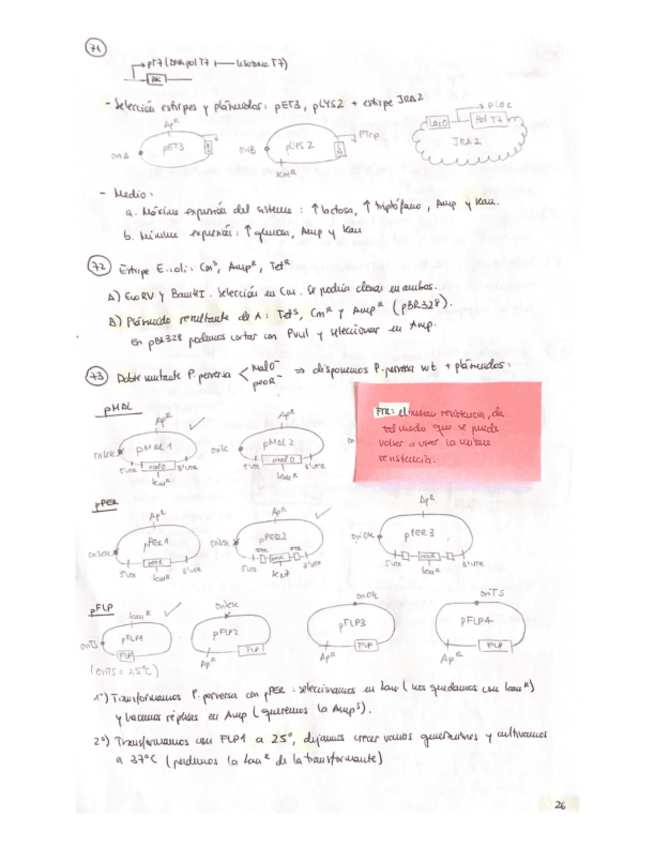 71
pT7 (RNApol T7 lisozima T7)
- Selección estirpes y plásmidos: pET3, pLYS2 + estirpe JRA2
Ap^R
oriA pET3
oriB pLYS2 PTrp
Km^R
lacO plac Pol T7
JRA2
- Medio:
a. Máxima expresión del sistema: ↑ lactosa, ↑ triptófano, Amp y Kan.
b. Mínima expresión: ↑ glucosa, Amp y Kan
72 Estirpe E.coli: Cm^S, Amp^R, Tet^R
A) EcoRV y BamHI. Selección en Cm. Se podría clonar en ambos.
B) Plásmido resultante de A: Tet^S, Cm^R y Amp^R (pBR328).
En pBR328 podemos cortar con PvuI y seleccionar en Amp.
73 Doble mutante P. perversa < malO^- perR^- ⇒ disponemos P. perversa wt + plásmidos:
FTR: eliminan resistencia, de
tal modo que se puede
volver a usar la misma
resistencia.
pMDL
Ap^R
pMDL1
5'UTR malO 3'UTR
Kan^R
Ap^R
pMDL2
5'UTR malO 3'UTR
Kan^R
pPER
Ap^R
pPER1
5'UTR 3'UTR
Kan^R
Ap^R
pPER2
5'UTR 3'UTR
Ap^R
pPER3
5'UTR 3'UTR
Kan^R
pFLP
Kan^R
oriTS pFLP1
FLP
(oriTS = 25°C)
pFLP2
Ap^R FLP
pFLP3
Ap^R FLP
oriTS
pFLP4
Ap^R FLP
1º) Transformamos P. perversa con pPER: seleccionamos en kan (nos quedamos con kan^R)
y hacemos réplicas en Amp (queremos la Amp^S).
2º) Transformamos con FLP1 a 25°, dejamos crecer varias generaciones y cultivamos
a 37°C (perdemos la kan^R de la transformante)
26